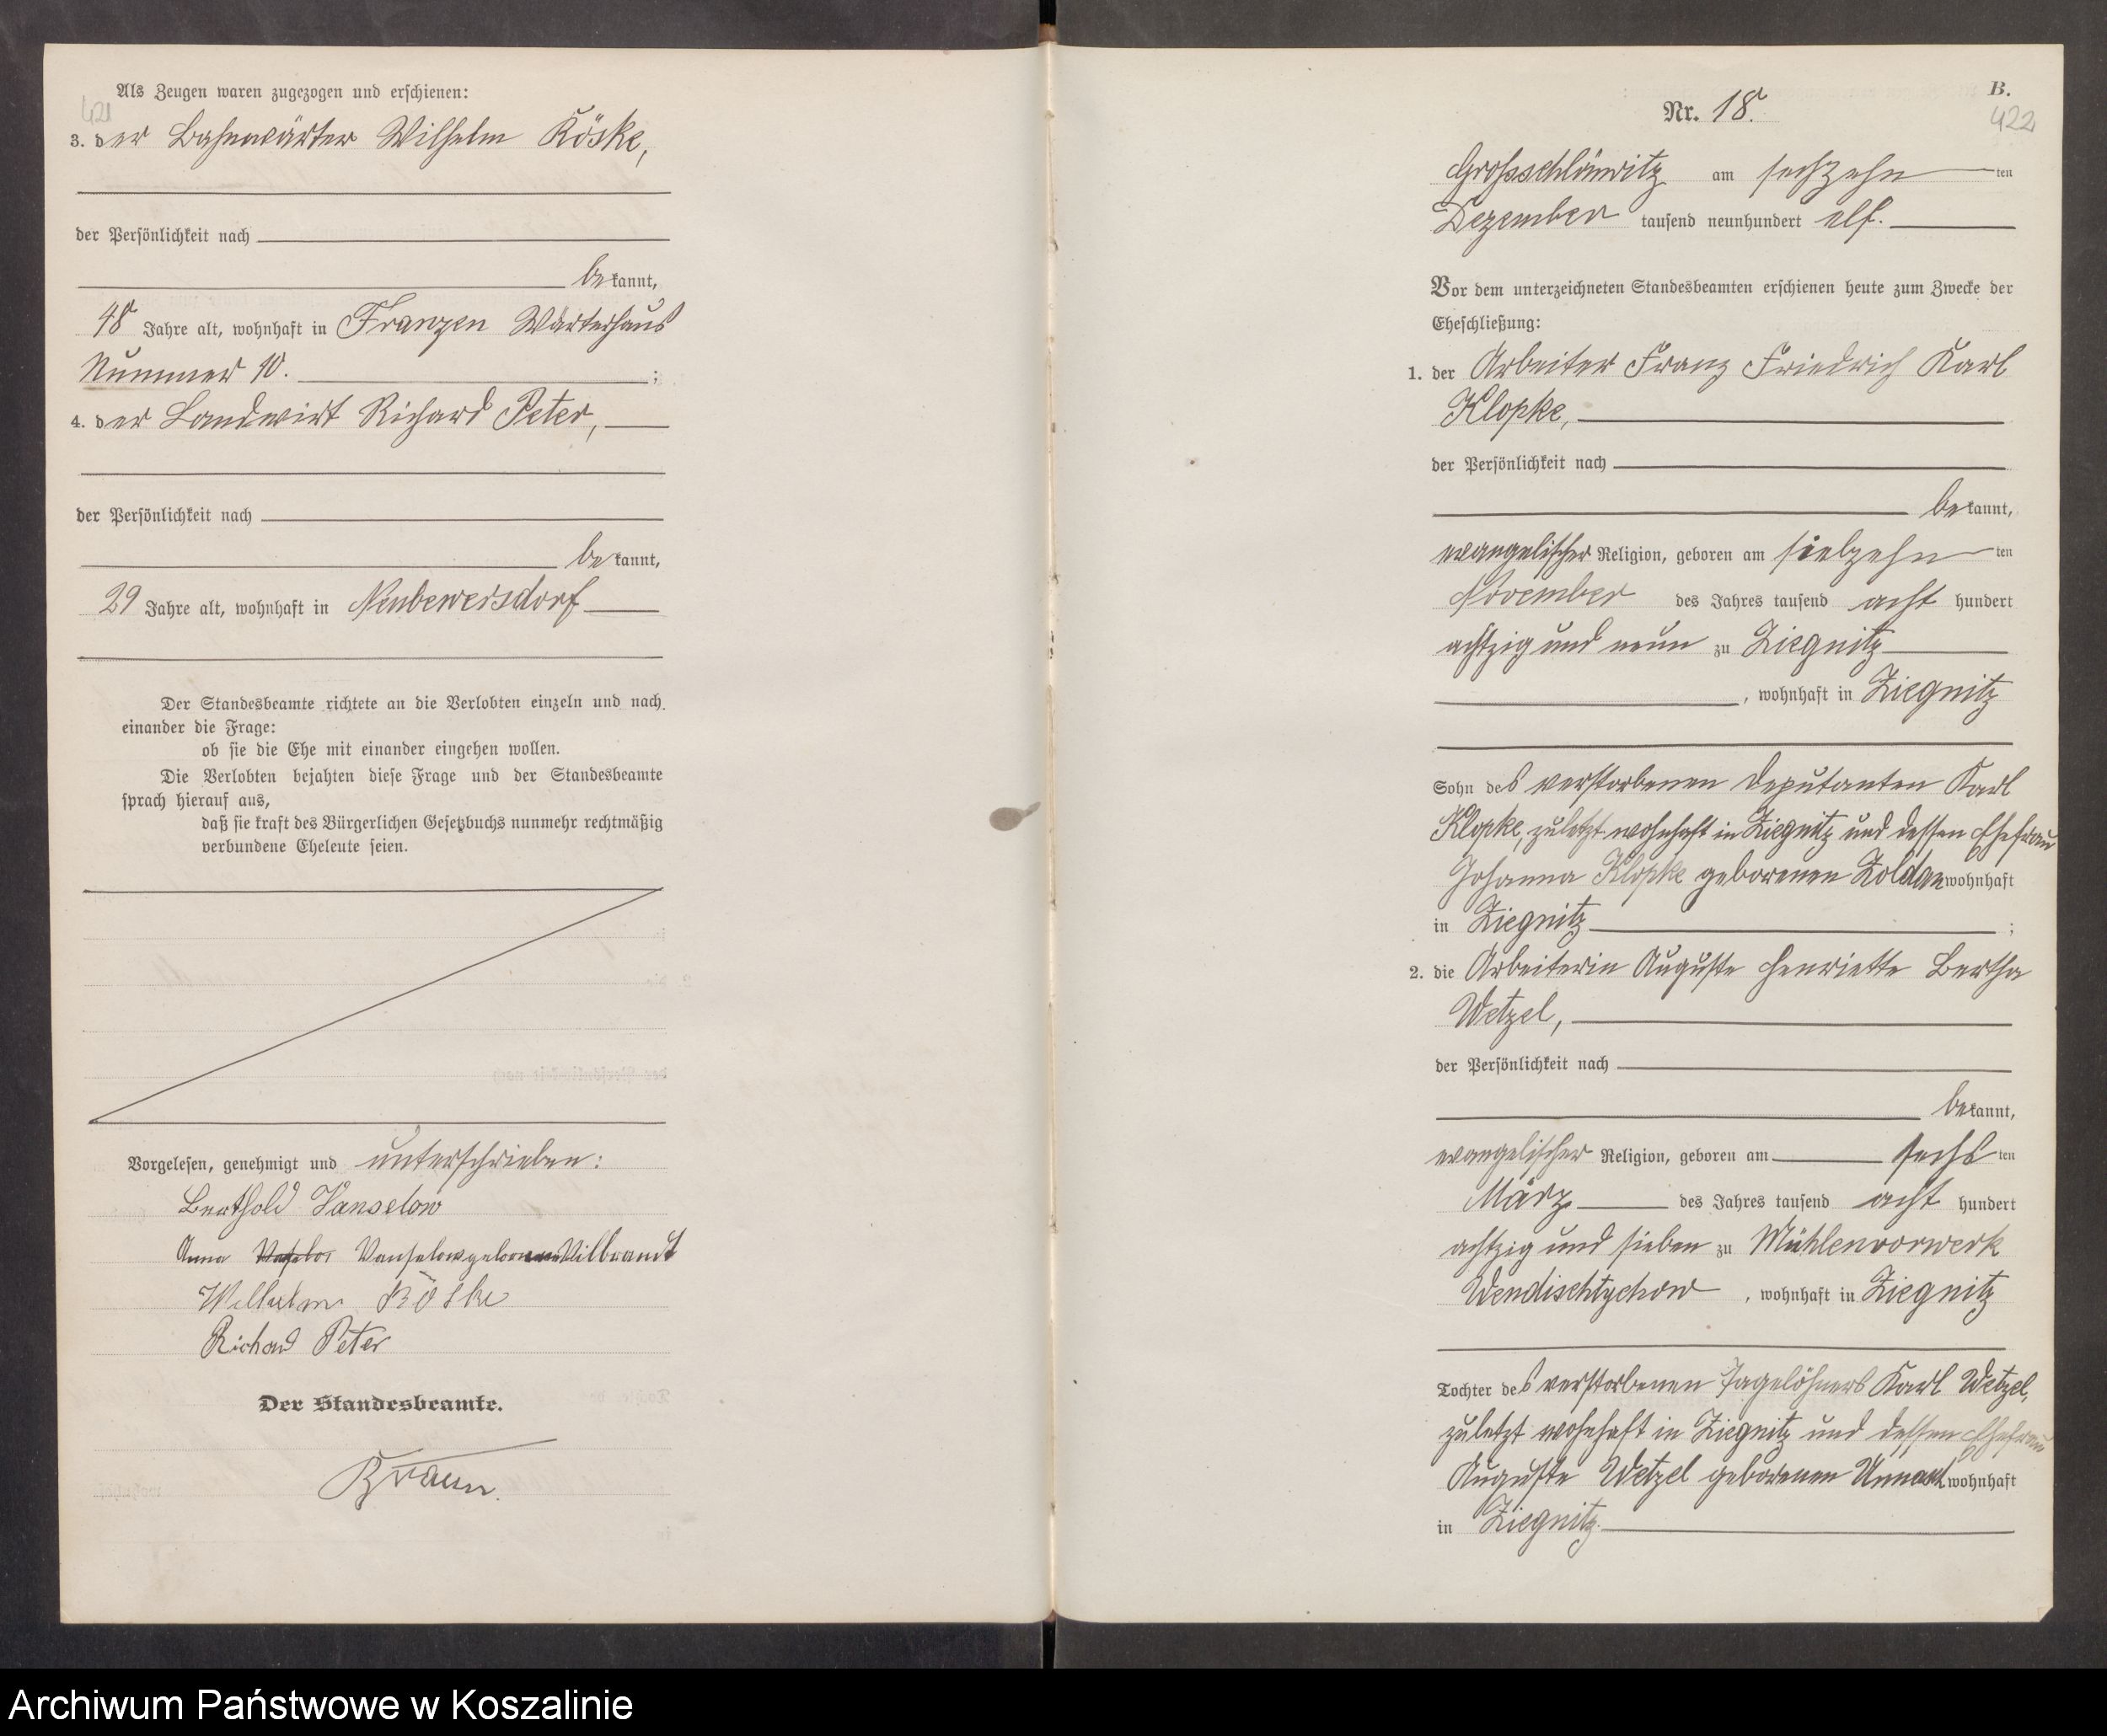 Als Zeugen waren zugezogen und erschienen:
421
3. der Bahnwärter Wilhelm Röske,
der Persönlichkeit nach
bekannt,
48 Jahre alt, wohnhaft in Franzen Wärterhaus
Nummer 10. ;
4. der Landwirt Richard Peter,
der Persönlichkeit nach
bekannt,
29 Jahre alt, wohnhaft in Neubewersdorf
Der Standesbeamte richtete an die Verlobten einzeln und nach
einander die Frage:
ob sie die Ehe mit einander eingehen wollen.
Die Verlobten bejahten diese Frage und der Standesbeamte
sprach hierauf aus,
daß sie kraft des Bürgerlichen Gesetzbuchs nunmehr rechtmäßig
verbundene Eheleute seien.
Vorgelesen, genehmigt und unterschrieben:
Berthold Vanselow
Anna Vanselow geborene Wilbrandt
Wilhelm Röske
Richard Peter
Der Standesbeamte.
Braun.
B.
Nr. 18.
422
Großschlönwitz am sechzehnten
Dezember tausend neunhundert elf.
Vor dem unterzeichneten Standesbeamten erschienen heute zum Zwecke der
Eheschließung:
1. der Arbeiter Franz Friedrich Karl
Klopke,
der Persönlichkeit nach
bekannt,
evangelischer Religion, geboren am siebzehnten
November des Jahres tausend acht hundert
achtzig und neun zu Ziegnitz
, wohnhaft in Ziegnitz
Sohn des verstorbenen Deputanten Karl
Klopke, zuletzt wohnhaft in Ziegnitz und dessen Ehefrau
Johanna Klopke geborenen Zoldan wohnhaft
in Ziegnitz ;
2. die Arbeiterin Auguste Henriette Bertha
Wetzel,
der Persönlichkeit nach
bekannt,
evangelischer Religion, geboren am sechsten
März des Jahres tausend acht hundert
achtzig und sieben zu Mühlenvorwerk
Wendischtychow , wohnhaft in Ziegnitz
Tochter des verstorbenen Tagelöhners Karl Wetzel,
zuletzt wohnhaft in Ziegnitz und dessen Ehefrau
Auguste Wetzel geborenen wohnhaft
in Ziegnitz.
Archiwum Państwowe w Koszalinie